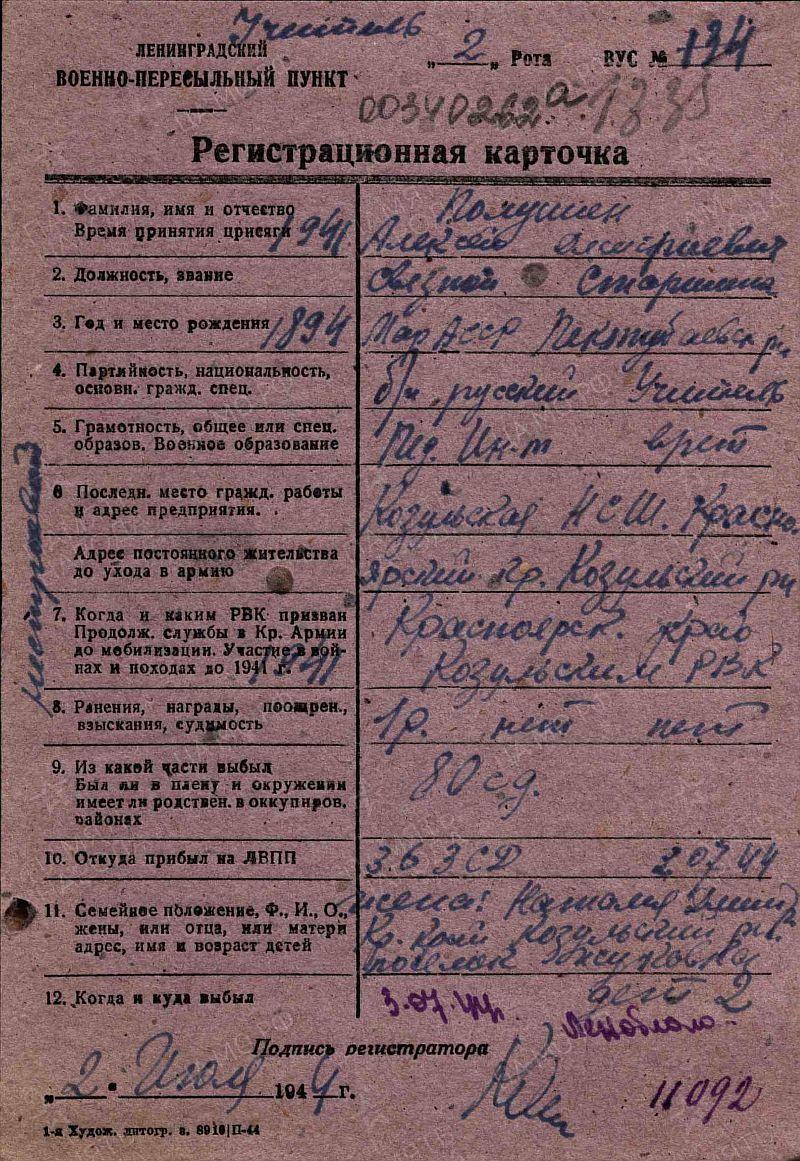 Учитель
ЛЕНИНГРАДСКИЙ
ВОЕННО-ПЕРЕСЫЛЬНЫЙ ПУНКТ
„ 2 „ Рота ВУС № 134
00340262а
Регистрационная карточка
1. Фамилия, имя и отчество
Время принятия присяги 1941
Алексей
2. Должность, звание
связной Старшина
3. Год и место рождения 1894
Мар АССР Пектубаевск рн
4. Партийность, национальность,
основн. гражд. спец.
б/п русский Учитель
5. Грамотность, общее или спец.
образов. Военное образование
Пед. Ин-т
6 Последн. место гражд. работы
и адрес предприятия.
Козульская НСШ. Красно-
Адрес постоянного жительства
до ухода в армию
ярский кр. Козульский рн
7. Когда и каким РВК призван
Продолж. службы в Кр. Армии
до мобилизации. Участие в вой-
нах и походах до 1941 г.
1941
Красноярск. край
Козульским РВК
8. Ранения, награды, поощрен.,
взыскания, судимость
1р. нет нет
9. Из какой части выбыл
Был ли в плену и окружении
имеет ли родствен. в оккупиров.
районах
80 сд.
10. Откуда прибыл на ЛВПП
363 СД 2.07.44
11. Семейное положение, Ф., И., О.,
жены, или отца, или матери
адрес, имя и возраст детей
жена: Наталия Дмит
Кр. край Козульский рн.
поселок
дет 2
12. Когда и куда выбыл
3.07.44.
Подпись регистратора
„ 2 " Июля 1944 г.
11092
1-я Худож. литогр. з. 8910|П-44